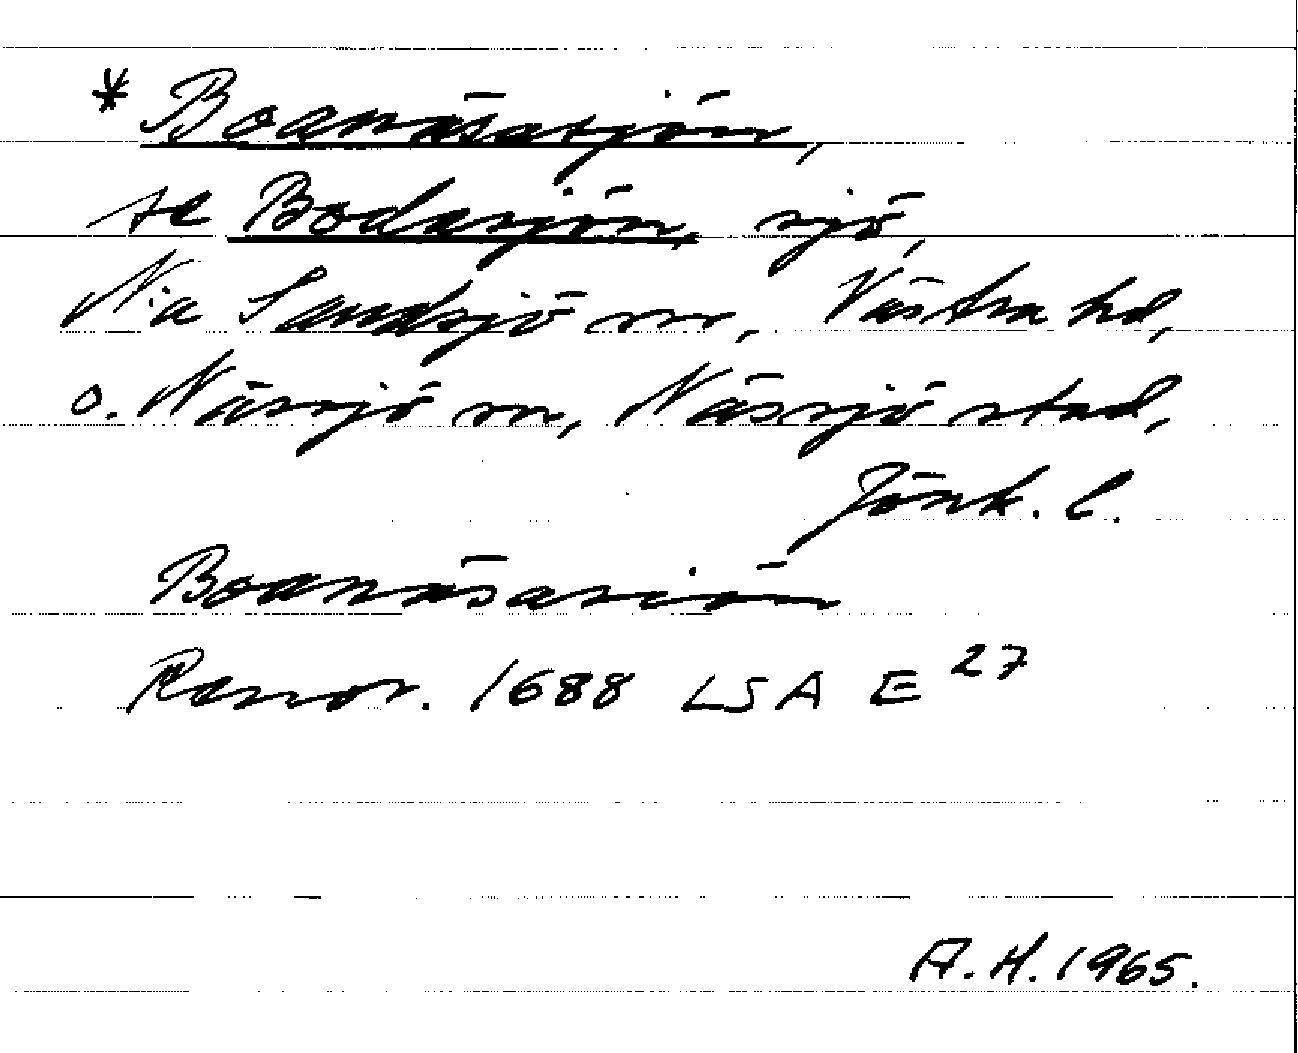 * Boanäsasjön,
se Bodasjön, sjö,
N:a Sandsjö sn, Västra hd,
o. Nässjö sn, Nässjö stad,
Jönk. l.
Boanäsasiön
Ransr. 1688 LSA E 27
A.H. 1965.